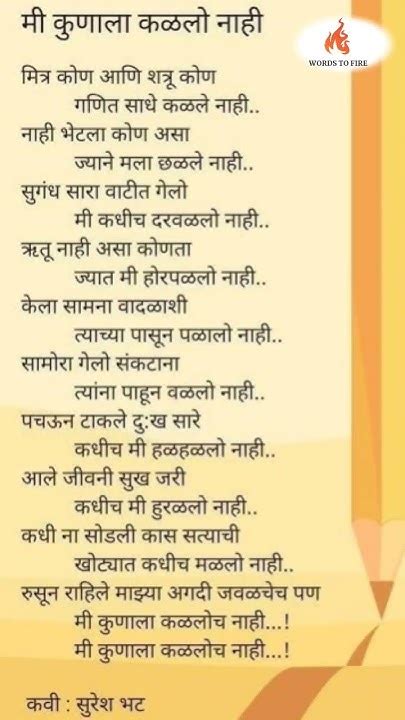 मी कुणाला कळलो नाही
WORDS TO FIRE
मित्र कोण आणि शत्रू कोण
गणित साधे कळले नाही..
नाही भेटला कोण असा
ज्याने मला छळले नाही..
सुगंध सारा वाटीत गेलो
मी कधीच दरवळलो नाही..
ऋतू नाही असा कोणता
ज्यात मी होरपळलो नाही..
केला सामना वादळाशी
त्याच्या पासून पळालो नाही..
सामोरा गेलो संकटाना
त्यांना पाहून वळलो नाही..
पचऊन टाकले दु:ख सारे
कधीच मी हळहळलो नाही..
आले जीवनी सुख जरी
कधीच मी हुरळलो नाही..
कधी ना सोडली कास सत्याची
खोट्यात कधीच मळलो नाही..
रुसून राहिले माझ्या अगदी जवळचेच पण
मी कुणाला कळलोच नाही...!
मी कुणाला कळलोच नाही...!
कवी : सुरेश भट